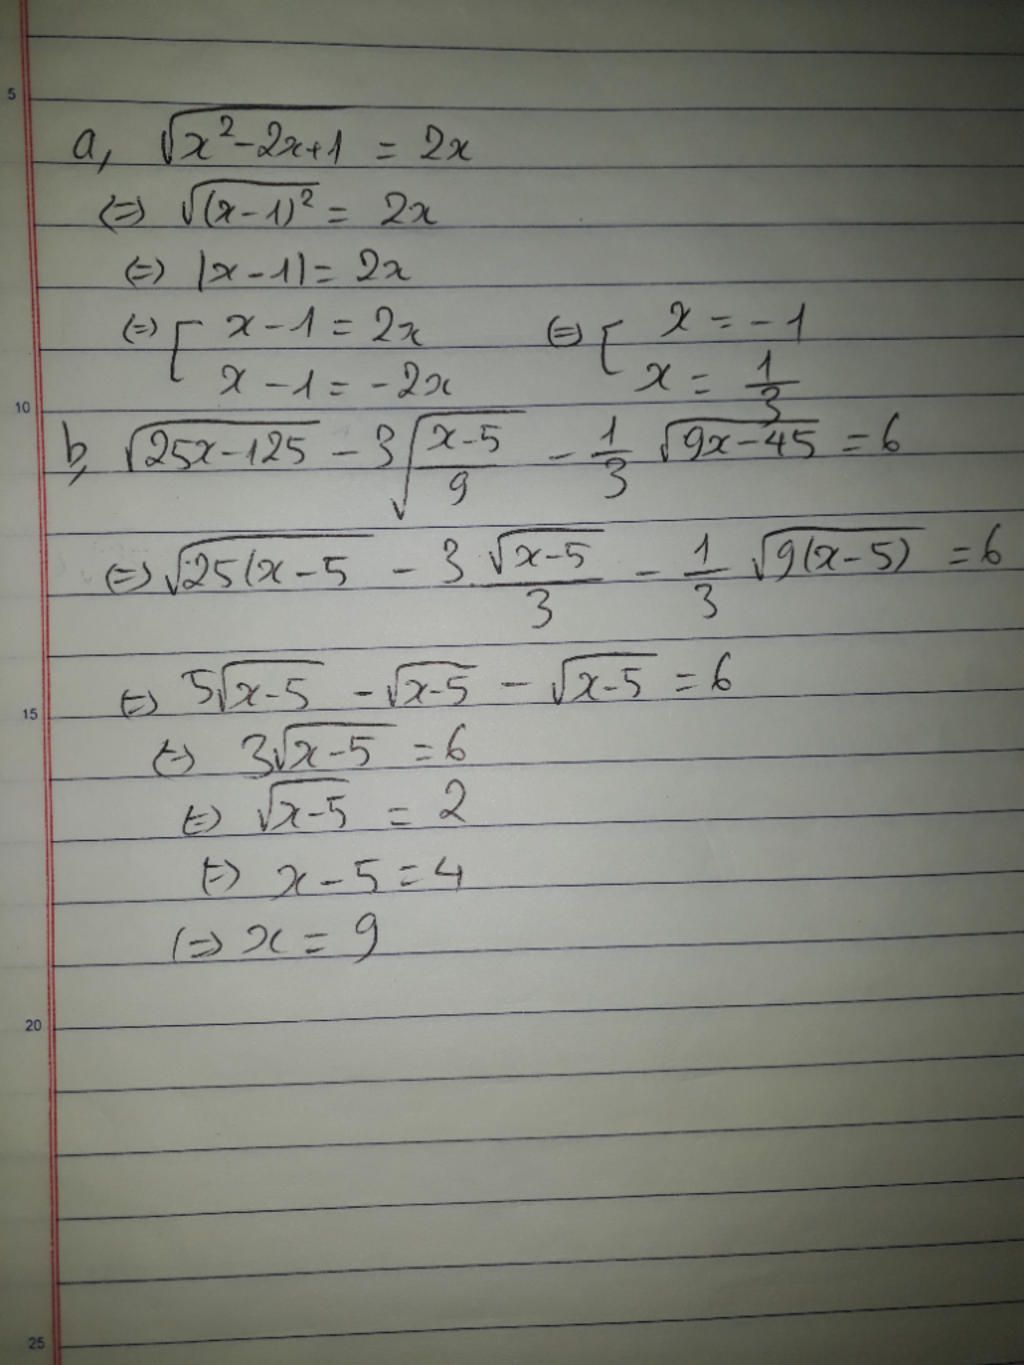 5
a, √(x²-2x+1) = 2x
(=) √((x-1)²) = 2x
(=) |x-1| = 2x
(=) [ x-1 = 2x (=) [ x = -1
x-1 = -2x x = 1/3
10
b, √(25x-125) - 3√((x-5)/9) - 1/3 √(9x-45) = 6
(=) √(25(x-5) - 3.√(x-5)/3 - 1/3 √(9(x-5)) = 6
(=) 5√(x-5) - √(x-5) - √(x-5) = 6
15
(=) 3√(x-5) = 6
(=) √(x-5) = 2
(=) x-5 = 4
(=) x = 9
20
25